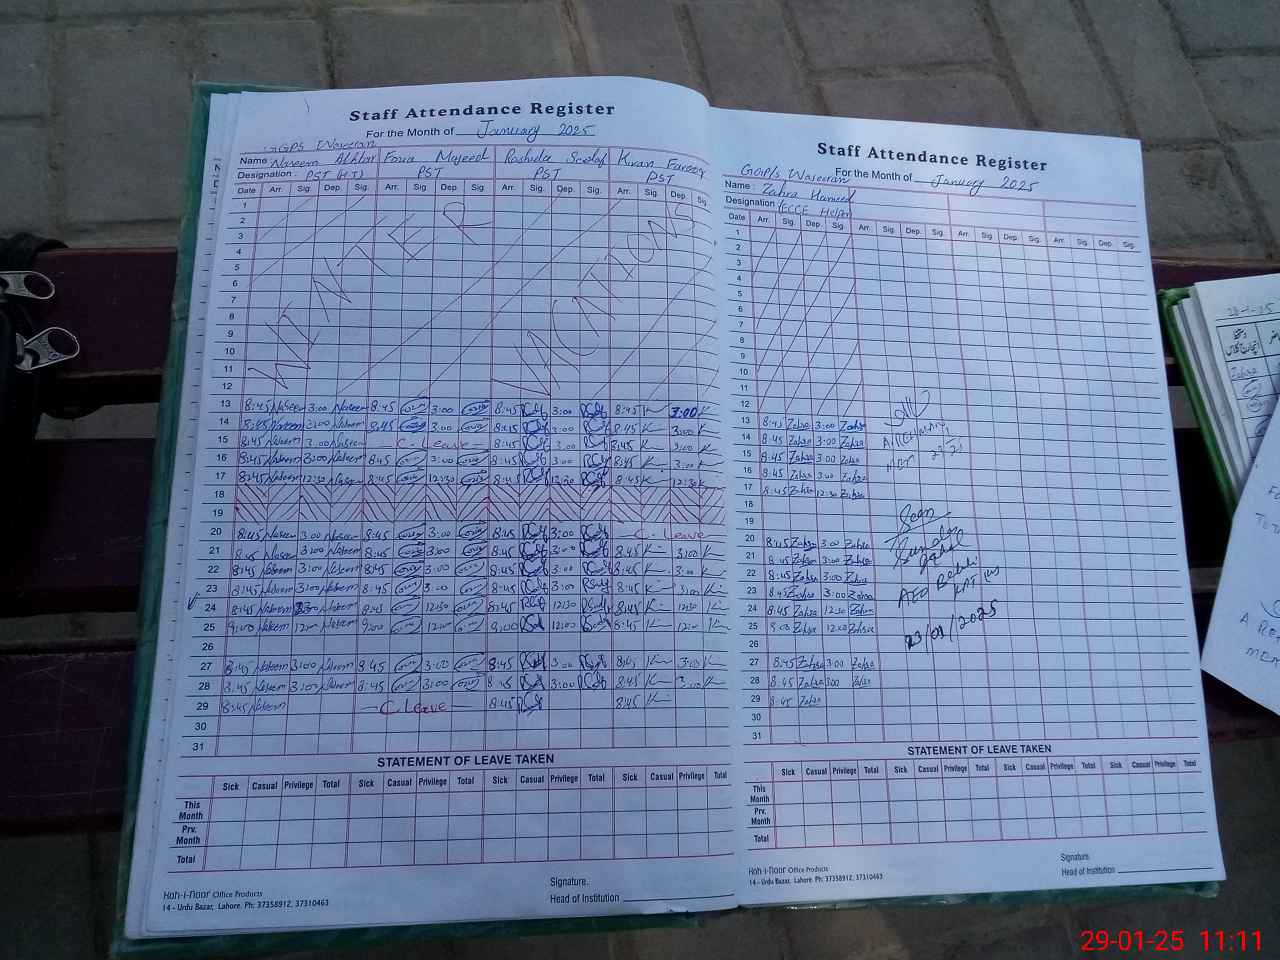 Staff Attendance Register
For the Month of January 2025
GGPS Waseeran
Name Naseem Akhtar Fozia Majeed Rashida Sadaf Kiran Farooq
Designation : PST (HT) PST PST PST
Date Arr. Sig. Dep. Sig. Arr. Sig. Dep. Sig. Arr. Sig. Dep. Sig. Arr. Sig. Dep. Sig.
1
2
3
4
5
6
7
8
9
10
11
12
WINTER VACATIONS
13 8:45 Naseem 3:00 Naseem 8:45 3:00 8:45 3:00 8:45 K 3:00 K
14 8:45 Naseem 3:00 Naseem 8:45 3:00 8:45 3:00 8:45 K 3:00 K
15 8:45 Naseem 3:00 Naseem — C. Leave — 8:45 3:00 8:45 K 3:00 K
16 8:45 Naseem 3:00 Naseem 8:45 3:00 8:45 3:00 8:45 K 3:00 K
17 8:45 Naseem 12:30 Naseem 8:45 12:30 8:45 12:30 8:45 K 12:30 K
18
19
20 8:45 Naseem 3:00 Naseem 8:45 3:00 8:45 3:00 — C. Leave
21 8:45 Naseem 3:00 Naseem 8:45 3:00 8:45 3:00 8:45 K 3:00 K
22 8:45 Naseem 3:00 Naseem 8:45 3:00 8:45 3:00 8:45 K 3:00 K
23 8:45 Naseem 3:00 Naseem 8:45 3:00 8:45 3:00 8:45 K 3:00 K
24 8:45 Naseem Naseem 8:45 12:30 8:45 12:30 8:45 K 12:30 K
25 9:00 Naseem 12:00 Naseem 9:00 12:00 9:00 12:00 8:45 K 12:00 K
26
27 8:45 Naseem 3:00 Naseem 8:45 3:00 8:45 3:00 8:45 K 3:00 K
28 8:45 Naseem 3:00 Naseem 8:45 3:00 8:45 3:00 8:45 K 3:00 K
29 8:45 Naseem — C. Leave — 8:45 8:45 K
30
31
STATEMENT OF LEAVE TAKEN
Sick Casual Privilege Total Sick Casual Privilege Total Sick Casual Privilege Total Sick Casual Privilege Total
This Month
Prv. Month
Total
Signature.
Head of Institution
Koh-i-noor Office Products
14 - Urdu Bazar, Lahore. Ph: 37358912, 37310463
Staff Attendance Register
For the Month of January 2025
GGP/s Waseeran
Name : Zahra Hameed
Designation ECCE Helper
Date Arr. Sig. Dep. Sig. Arr. Sig. Dep. Sig. Arr. Sig. Dep. Sig. Arr. Sig. Dep. Sig.
1
2
3
4
5
6
7
8
9
10
11
12
13 8:45 Zahra 3:00 Zahra
14 8:45 Zahra 3:00 Zahra
15 8:45 Zahra 3:00 Zahra
16 8:45 Zahra 3:00 Zahra
17 8:45 Zahra 12:30 Zahra
18
19
20 8:45 Zahra 3:00 Zahra
21 8:45 Zahra 3:00 Zahra
22 8:45 Zahra 3:00 Zahra
23 8:45 Zahra 3:00 Zahra
24 8:45 Zahra 12:30 Zahra
25 9:00 Zahra 12:00 Zahra
26
27 8:45 Zahra 3:00 Zahra
28 8:45 Zahra 3:00 Zahra
29 8:45 Zahra
30
31
Seen
AEO
23/01/2025
STATEMENT OF LEAVE TAKEN
Sick Casual Privilege Total Sick Casual Privilege Total Sick Casual Privilege Total Sick Casual Privilege Total
This Month
Prv. Month
Total
Signature
Head of Institution
Koh-i-noor Office Products
14 - Urdu Bazar, Lahore. Ph: 37358912, 37310463
Zahra
29-01-25 11:11